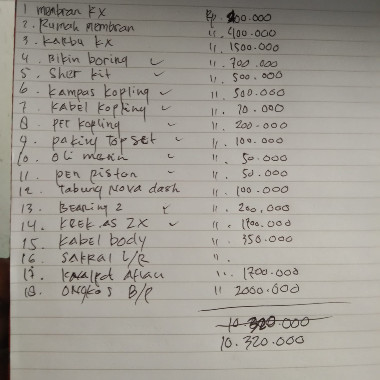 1 membran KX Rp. 200.000
2. Rumah membran ". 400.000
3. Karbu KX ". 1500.000
4. Bikin boring ✓ ". 700.000
5. Sher kit ✓ ". 500.000
6. Kampas kopling ✓ ". 500.000
7. Kabel kopling ✓ ". 70.000
8. per kopling ✓ ". 200.000
9. paking Top set ✓ ". 100.000
10. Oli mesin ✓ ". 50.000
11. pen piston ✓ ". 50.000
12. Tabung Nova dash ". 100.000
13. Bearing 2 ✓ ". 200.000
14. KREK AS ZX ✓ ".
15. Kabel body ". 350.000
16. SAKRAL L/R ".
17. Knalpot ". 1700.000
18. ONGKOS B/P " 2000.000
10.320.000
10.320.000